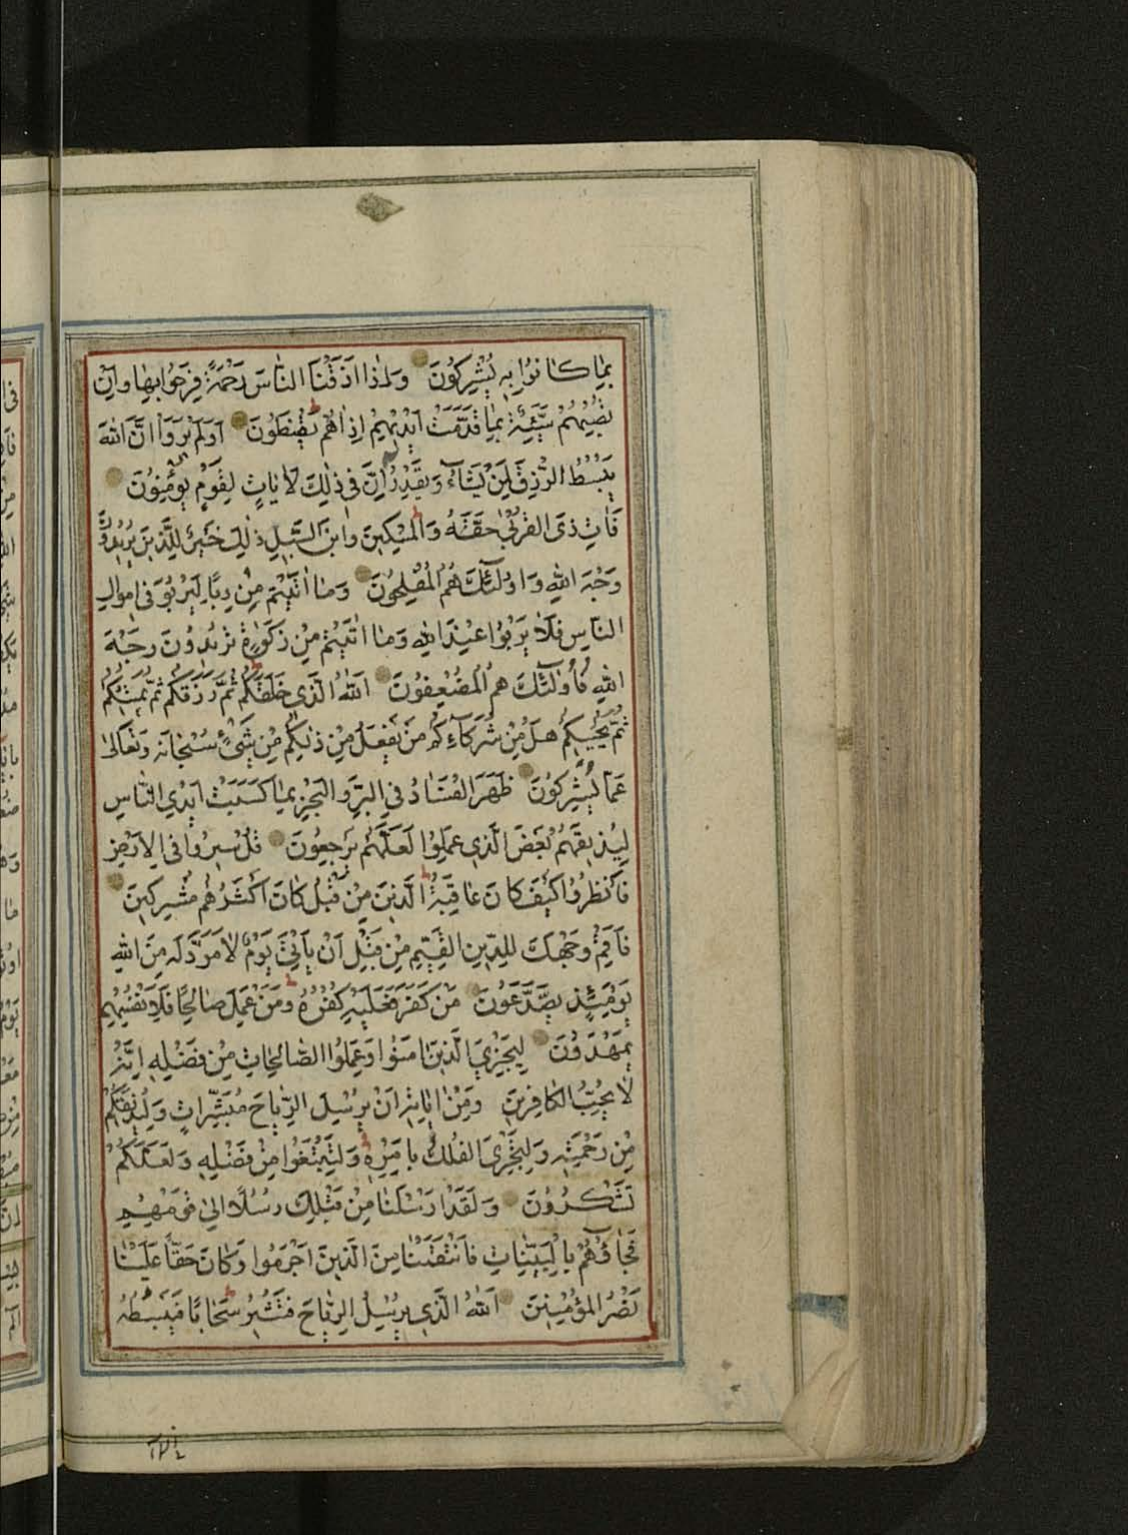 بِمَا كَانُوا بِهِ يُشْرِكُونَ وَاِذَا اَذَقْنَا النَّاسَ رَحْمَةً فَرِحُوا بِهَا وَاِنْ
تُصِبْهُمْ سَيِّئَةٌ بِمَا قَدَّمَتْ اَيْدِيهِمْ اِذَا هُمْ يَقْنَطُونَ اَوَلَمْ يَرَوْا اَنَّ اللّٰهَ
يَبْسُطُ الرِّزْقَ لِمَنْ يَشَآءُ وَيَقْدِرُ اِنَّ فِى ذٰلِكَ لَاٰيَاتٍ لِقَوْمٍ يُؤْمِنُونَ
فَاٰتِ ذَى الْقُرْبٰى حَقَّهُ وَالْمِسْكِينَ وَابْنَ السَّبِيلِ ذٰلِكَ خَيْرٌ لِلَّذِينَ يُرِيدُونَ
وَجْهَ اللّٰهِ وَاُولٰئِكَ هُمُ الْمُفْلِحُونَ وَمَا اٰتَيْتُمْ مِنْ رِبًا لِيَرْبُوَ فِى اَمْوَالِ
النَّاسِ فَلَا يَرْبُوا عِنْدَ اللّٰهِ وَمَا اٰتَيْتُمْ مِنْ زَكٰوةٍ تُرِيدُونَ وَجْهَ
اللّٰهِ فَاُولٰئِكَ هُمُ الْمُضْعِفُونَ اَللّٰهُ الَّذِى خَلَقَكُمْ ثُمَّ رَزَقَكُمْ ثُمَّ يُمِيتُكُمْ
ثُمَّ يُحْيِيكُمْ هَلْ مِنْ شُرَكَآءِكُمْ مَنْ يَفْعَلُ مِنْ ذٰلِكُمْ مِنْ شَىْءٍ سُبْحَانَهُ وَتَعَالٰى
عَمَّا يُشْرِكُونَ ظَهَرَ الْفَسَادُ فِى الْبَرِّ وَالْبَحْرِ بِمَا كَسَبَتْ اَيْدِى النَّاسِ
لِيُذِيقَهُمْ بَعْضَ الَّذِى عَمِلُوا لَعَلَّهُمْ يَرْجِعُونَ قُلْ سِيرُوا فِى الْاَرْضِ
فَانْظُرُوا كَيْفَ كَانَ عَاقِبَةُ الَّذِينَ مِنْ قَبْلُ كَانَ اَكْثَرُهُمْ مُشْرِكِينَ
فَاَقِمْ وَجْهَكَ لِلدِّينِ الْقَيِّمِ مِنْ قَبْلِ اَنْ يَأْتِىَ يَوْمٌ لَا مَرَدَّ لَهُ مِنَ اللّٰهِ
يَوْمَئِذٍ يَصَّدَّعُونَ مَنْ كَفَرَ فَعَلَيْهِ كُفْرُهُ وَمَنْ عَمِلَ صَالِحًا فَلِاَنْفُسِهِمْ
يَمْهَدُونَ لِيَجْزِىَ الَّذِينَ اٰمَنُوا وَعَمِلُوا الصَّالِحَاتِ مِنْ فَضْلِهِ اِنَّهُ
لَا يُحِبُّ الْكَافِرِينَ وَمِنْ اٰيَاتِهِ اَنْ يُرْسِلَ الرِّيَاحَ مُبَشِّرَاتٍ وَلِيُذِيقَكُمْ
مِنْ رَحْمَتِهِ وَلِتَجْرِىَ الْفُلْكُ بِاَمْرِهِ وَلِتَبْتَغُوا مِنْ فَضْلِهِ وَلَعَلَّكُمْ
تَشْكُرُونَ وَلَقَدْ اَرْسَلْنَا مِنْ قَبْلِكَ رُسُلًا اِلٰى قَوْمِهِمْ
فَجَاؤُهُمْ بِالْبَيِّنَاتِ فَانْتَقَمْنَا مِنَ الَّذِينَ اَجْرَمُوا وَكَانَ حَقًّا عَلَيْنَا
نَصْرُ الْمُؤْمِنِينَ اَللّٰهُ الَّذِى يُرْسِلُ الرِّيَاحَ فَتُثِيرُ سَحَابًا فَيَبْسُطُهُ